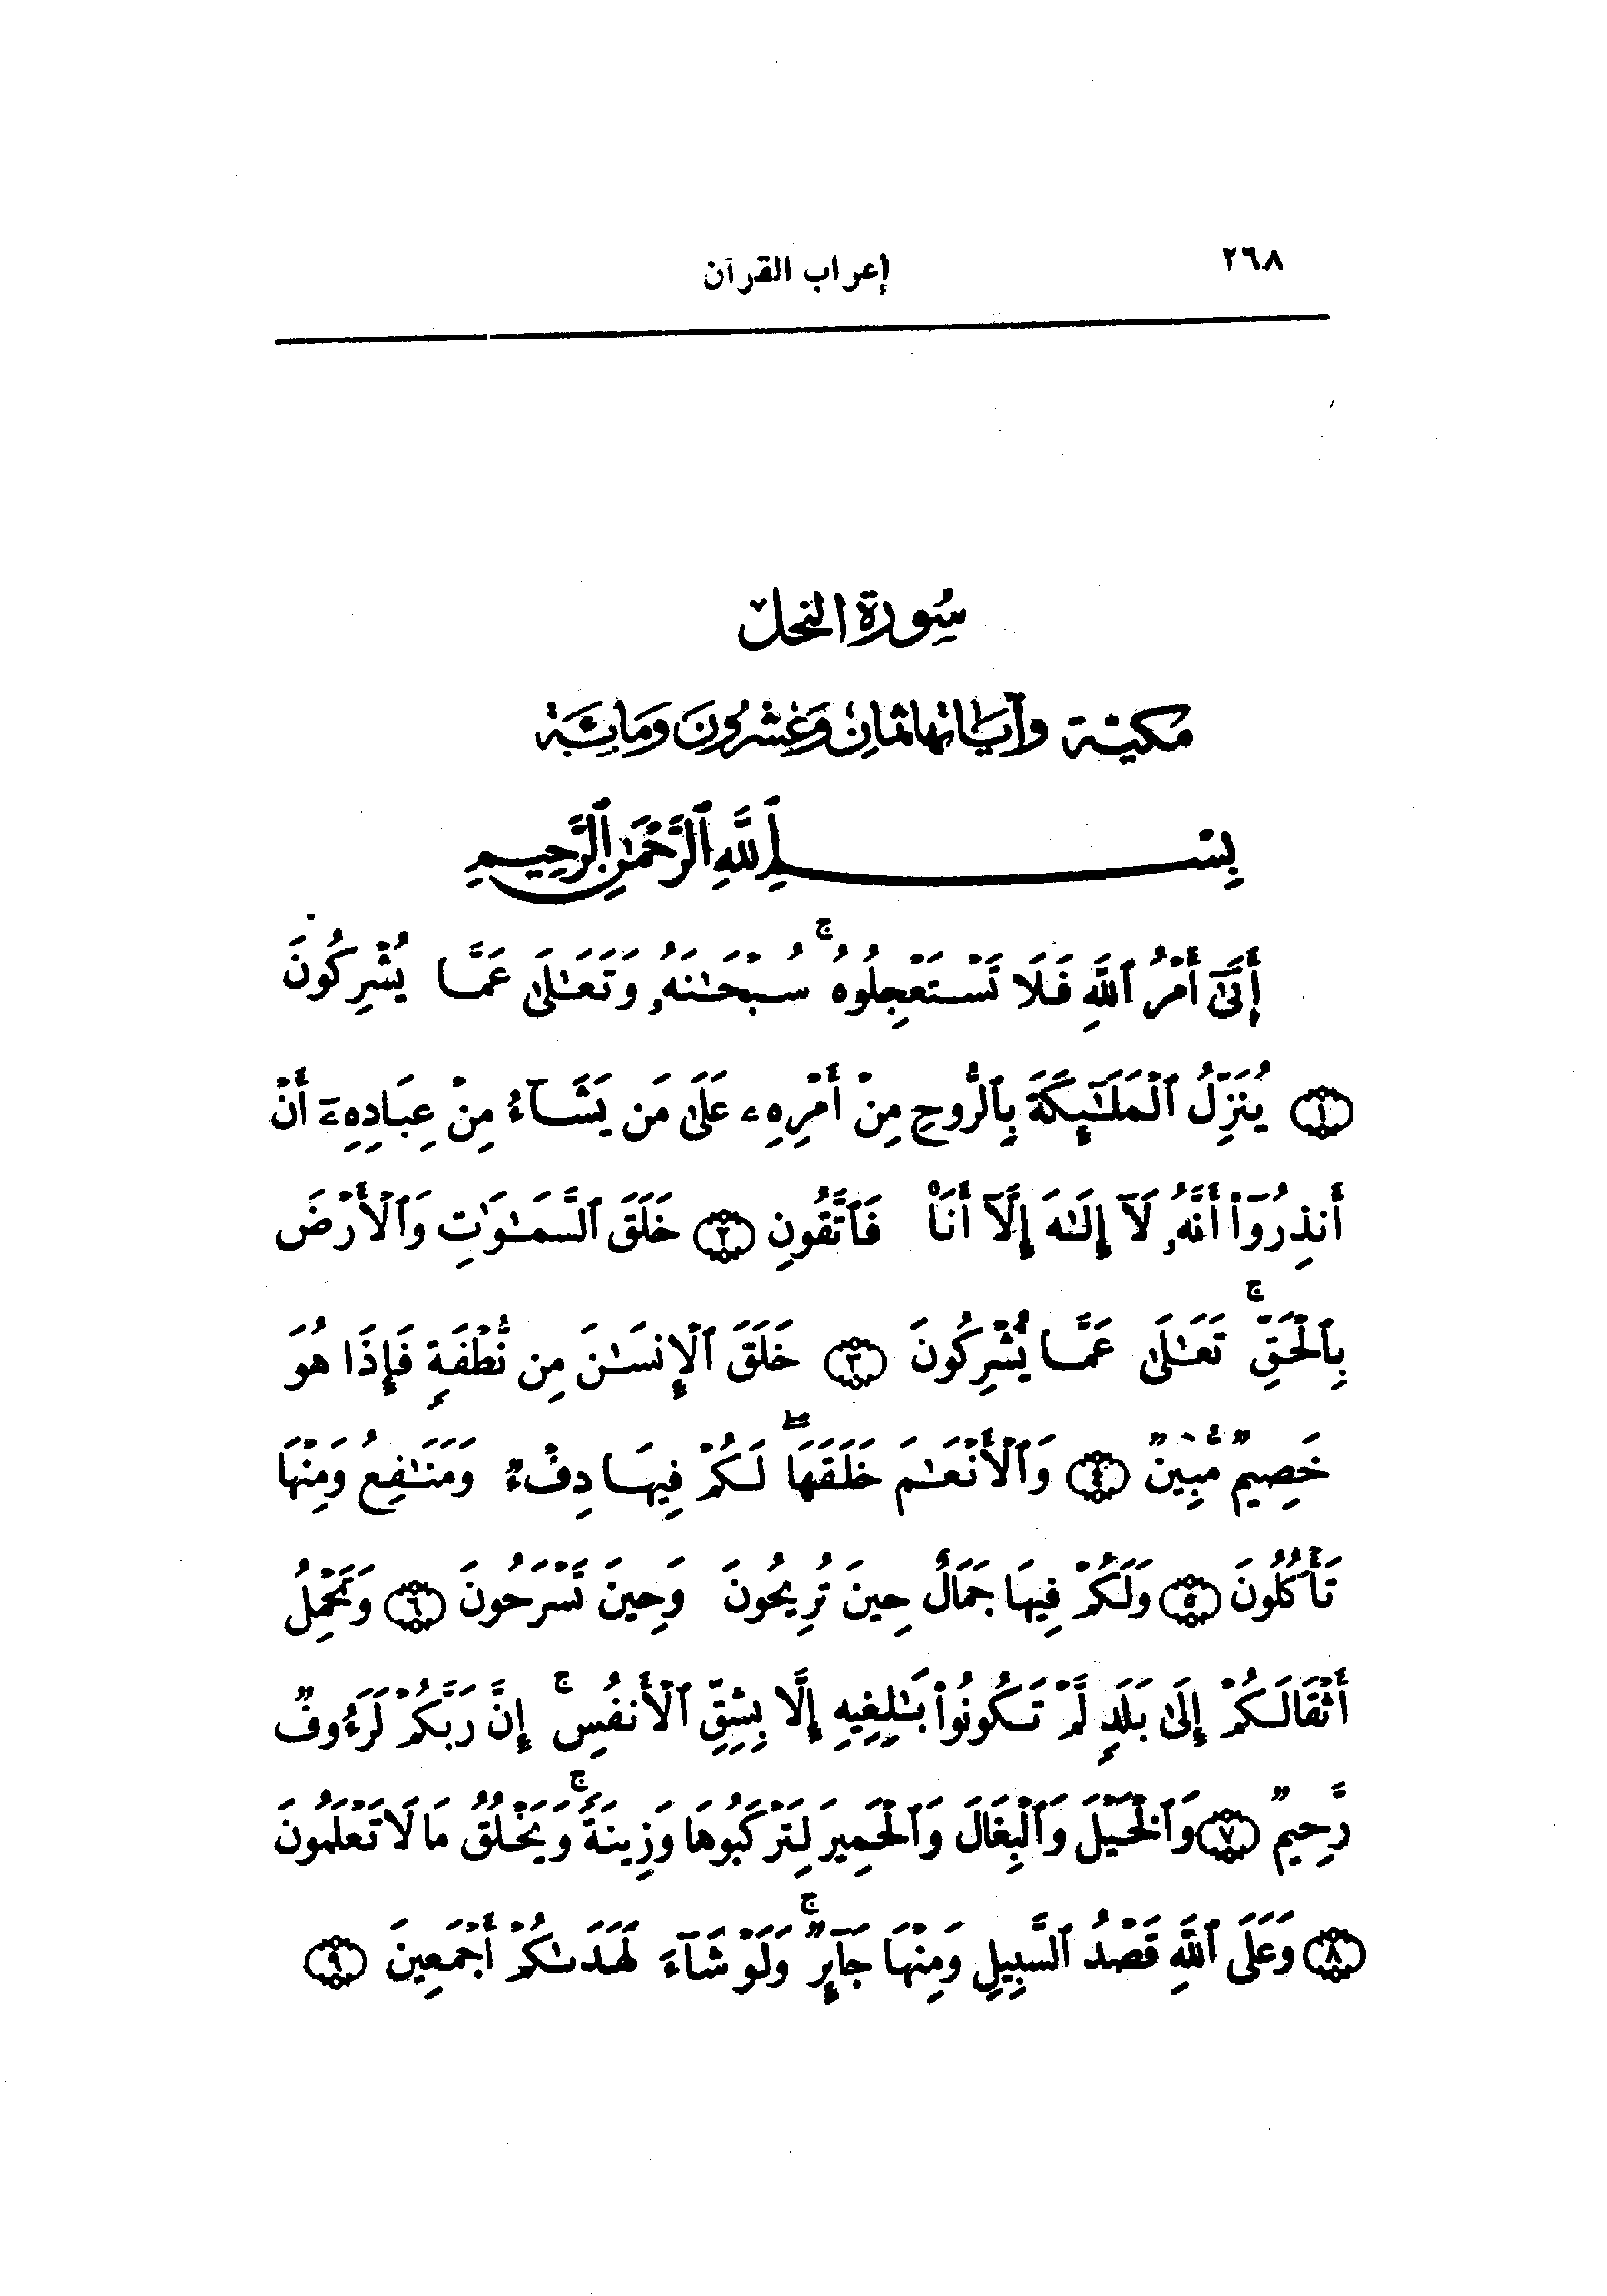 ٢٦٨
إعراب القرآن
سُورة النحل
مكيّة وآياتها ثمانٍ وَعشْرُونَ وَمَائِيَة
بِسْمِ ٱللَّهِ ٱلرَّحْمَٰنِ ٱلرَّحِيمِ
أَتَىٰٓ أَمْرُ ٱللَّهِ فَلَا تَسْتَعْجِلُوهُ ۚ سُبْحَٰنَهُۥ وَتَعَٰلَىٰ عَمَّا يُشْرِكُونَ
﴿١﴾ يُنَزِّلُ ٱلْمَلَٰٓئِكَةَ بِٱلرُّوحِ مِنْ أَمْرِهِۦ عَلَىٰ مَن يَشَآءُ مِنْ عِبَادِهِۦٓ أَنْ
أَنذِرُوٓا۟ أَنَّهُۥ لَآ إِلَٰهَ إِلَّآ أَنَا۠ فَٱتَّقُونِ ﴿٢﴾ خَلَقَ ٱلسَّمَٰوَٰتِ وَٱلْأَرْضَ
بِٱلْحَقِّ ۚ تَعَٰلَىٰ عَمَّا يُشْرِكُونَ ﴿٣﴾ خَلَقَ ٱلْإِنسَٰنَ مِن نُّطْفَةٍ فَإِذَا هُوَ
خَصِيمٌ مُّبِينٌ ﴿٤﴾ وَٱلْأَنْعَٰمَ خَلَقَهَا ۖ لَكُمْ فِيهَا دِفْءٌ وَمَنَٰفِعُ وَمِنْهَا
تَأْكُلُونَ ﴿٥﴾ وَلَكُمْ فِيهَا جَمَالٌ حِينَ تُرِيحُونَ وَحِينَ تَسْرَحُونَ ﴿٦﴾ وَتَحْمِلُ
أَثْقَالَكُمْ إِلَىٰ بَلَدٍ لَّمْ تَكُونُوا۟ بَٰلِغِيهِ إِلَّا بِشِقِّ ٱلْأَنفُسِ ۚ إِنَّ رَبَّكُمْ لَرَءُوفٌ
رَّحِيمٌ ﴿٧﴾ وَٱلْخَيْلَ وَٱلْبِغَالَ وَٱلْحَمِيرَ لِتَرْكَبُوهَا وَزِينَةً ۚ وَيَخْلُقُ مَا لَا تَعْلَمُونَ
﴿٨﴾ وَعَلَى ٱللَّهِ قَصْدُ ٱلسَّبِيلِ وَمِنْهَا جَآئِرٌ ۚ وَلَوْ شَآءَ لَهَدَىٰكُمْ أَجْمَعِينَ ﴿٩﴾